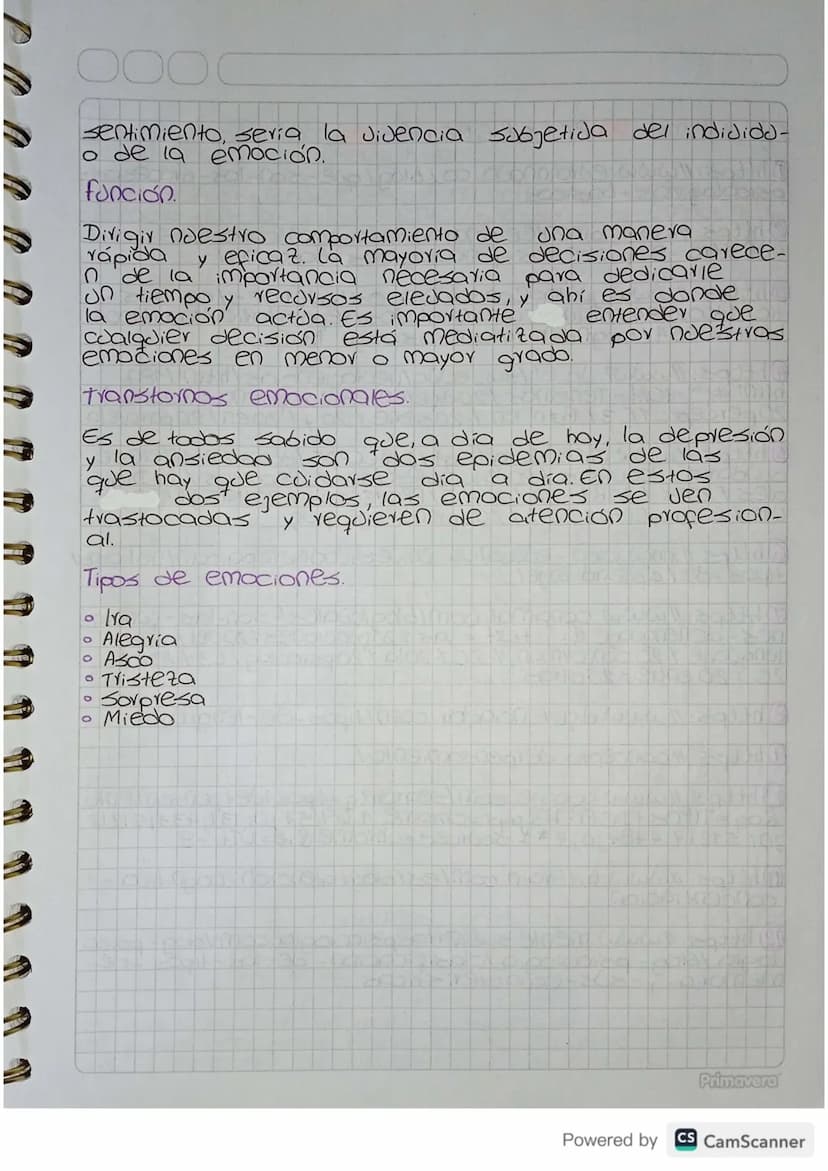 sentimiento, sería la vivencia subjetiva del individu-
o de la emoción.
función.
Dirigir nuestro comportamiento de una manera
rápida y eficaz. La mayoría de decisiones carece-
n de la importancia necesaria para dedicarle
un tiempo y recursos elevados, y ahí es donde
la emoción actúa. Es importante entender que
cualquier decisión está mediatizada por nuestras
emociones en menor o mayor grado.
transtornos emocionales.
Es de todos sabido que, a día de hoy, la depresión
y la ansiedad son dos epidemias de las
que hay que cuidarse día a día. En estos
dos ejemplos, las emociones se ven
trastocadas y requieren de atención profesion-
al.
Tipos de emociones.
Ira
Alegría
Asco
Tristeza
Sorpresa
Miedo
Primavera
Powered by CS CamScanner